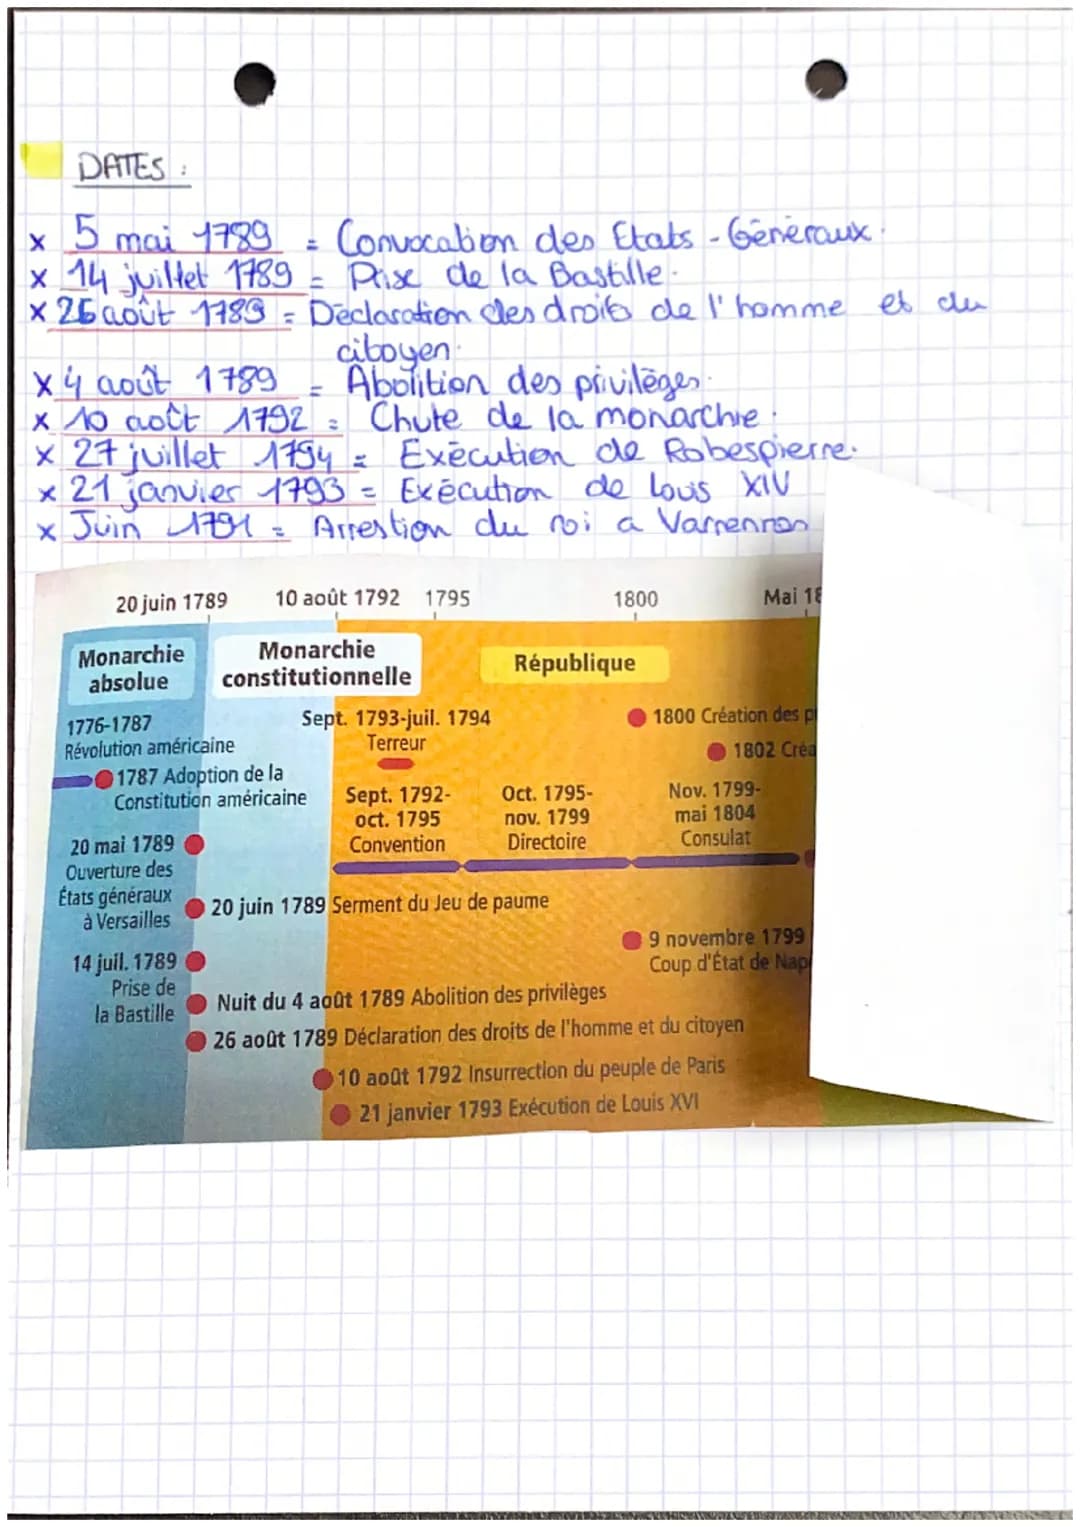 DATES :
x 5 mai 1789 = Convocation des Etats - Généraux.
x 14 juillet 1789 = Prise de la Bastille.
x 26 août 1789 = Déclaration des droits de l'homme et du
citoyen.
x 4 août 1789 = Abolition des privilèges.
x 10 août 1792 = Chute de la monarchie.
x 27 juillet 1794 = Exécution de Robespierre.
x 21 janvier 1793 = Exécution de Louis XIV
x Juin 1791 = Arrestion du roi a Varrennan
20 juin 1789 10 août 1792 1795 1800 Mai 18
Monarchie
absolue
Monarchie
constitutionnelle
République
1776-1787
Révolution américaine
1787 Adoption de la
Constitution américaine
Sept. 1793-juil. 1794
Terreur
1800 Création des p
1802 Créa
Sept. 1792-
oct. 1795
Convention
Oct. 1795-
nov. 1799
Directoire
Nov. 1799-
mai 1804
Consulat
20 mai 1789
Ouverture des
États généraux
à Versailles
20 juin 1789 Serment du Jeu de paume
9 novembre 1799
Coup d'État de Nap
14 juil. 1789
Prise de
la Bastille
Nuit du 4 août 1789 Abolition des privilèges
26 août 1789 Déclaration des droits de l'homme et du citoyen
10 août 1792 Insurrection du peuple de Paris
21 janvier 1793 Exécution de Louis XVI